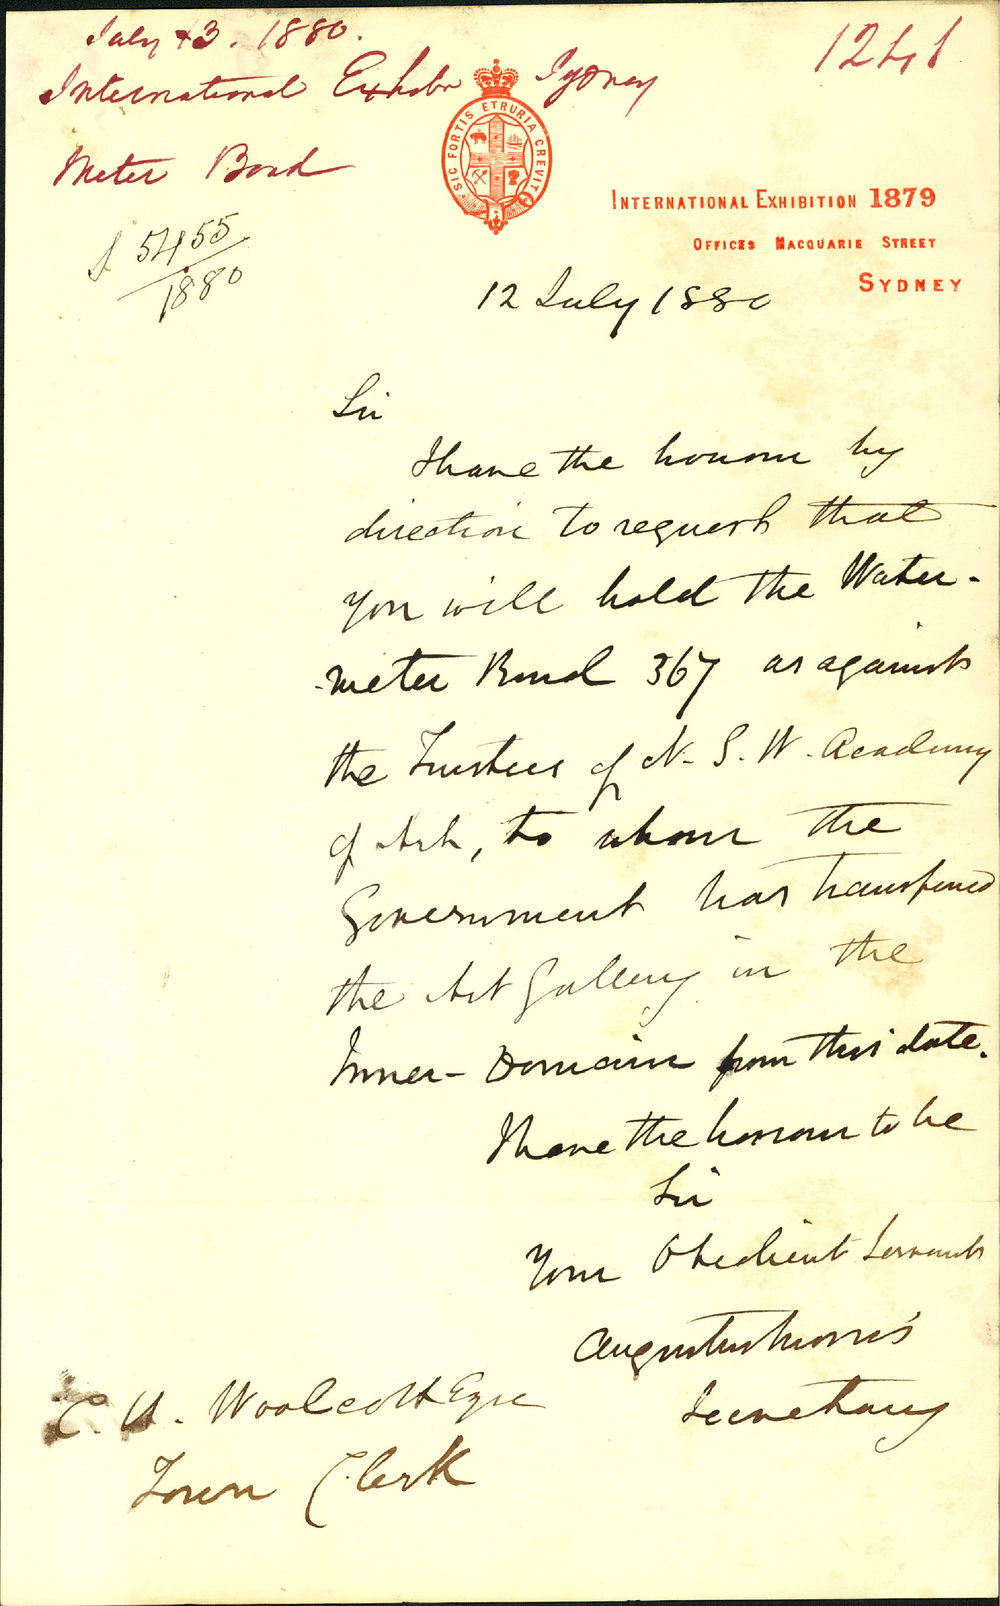 July 13. 1880.
1241
International Exhibn Sydney
Meter Bond
5455
1880
SIC FORTIS ETRURIA CREVIT
INTERNATIONAL EXHIBITION 1879
OFFICES MACQUARIE STREET
SYDNEY
12 July 1880
Sir
I have the honour by
direction to request that
you will hold the Water-
meter Bond 367 as against
the Trustees of N. S. W. Academy
of Art, to whom the
Government has transferred
the Art Gallery in the
Inner-Domain from this date.
I have the honour to be
Sir
Your Obedient Servant
Augustus Morris
Secretary
C. H. Woolcott Esqre
Town Clerk